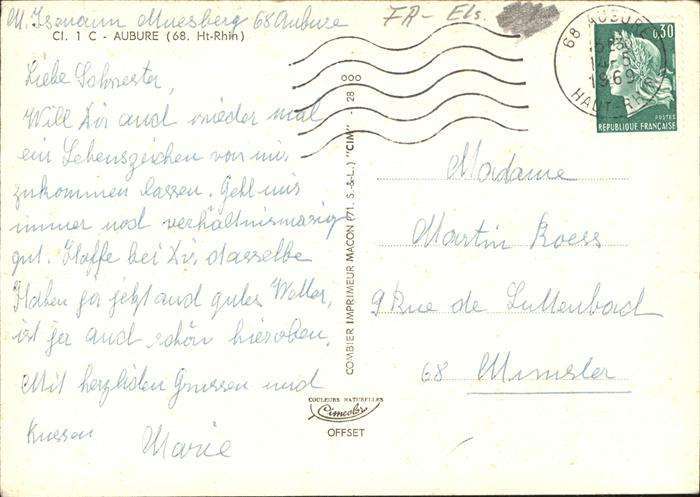 M. Ismann Muesberg 68 Aubure
FR - Els.
Cl. 1 C - AUBURE (68. Ht-Rhin)
Liebe Schwester,
Will Dir auch wieder mal
ein Lebenszeichen von mir
zukommen lassen. Geht mir
immer noch verhältnismäsig
gut. Hoffe bei Dir dasselbe
Haben ja jetzt auch gutes Wetter,
ist ja auch schön hieroben.
Mit herzlichen Grussen und
Kussen
Marie
COMBIER IMPRIMEUR MACON (71. S.-&-L.) "CIM" - 28 000
COULEURS NATURELLES
Cimcolor
OFFSET
68 AUBURE
1969
HAUT-RHIN
0,30
POSTES
REPUBLIQUE FRANÇAISE
Madame
Martin Roess
9 Rue de Luttenbach
68 Munster